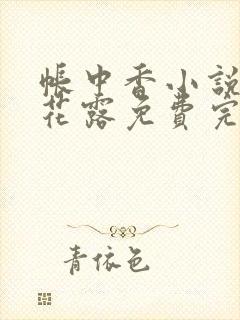 帐中香小説
花露免費完
青依色